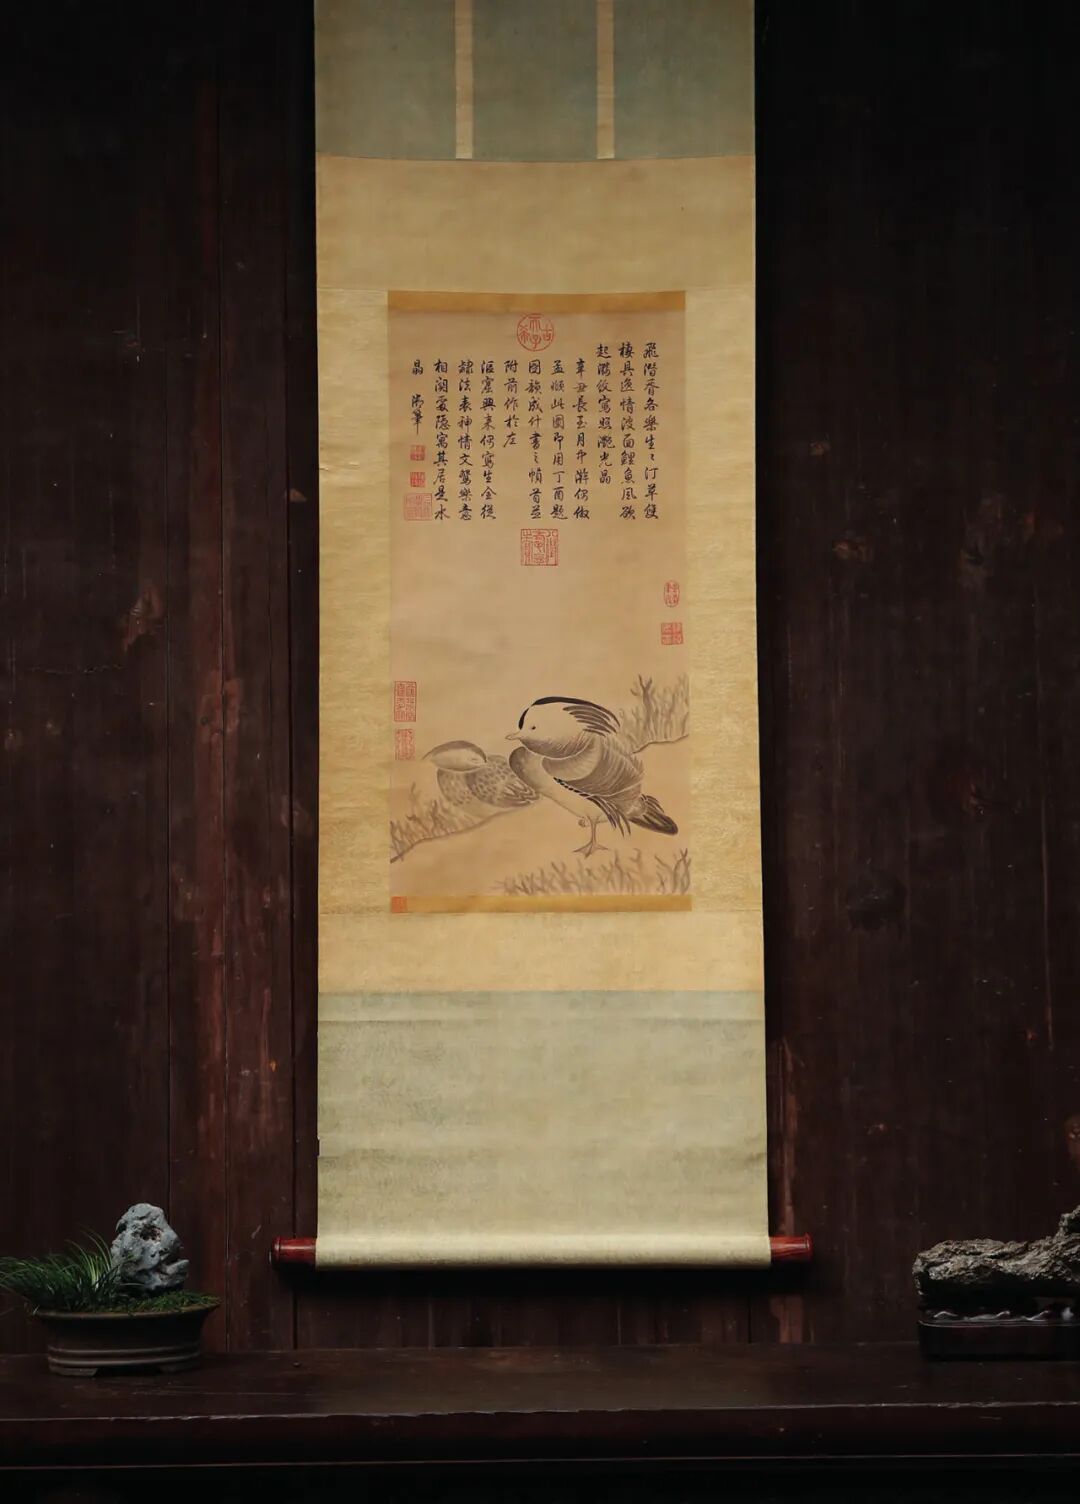 古希天子
飛潛各樂生〻汀草雙
棲具逸情波面鯉魚風欲
起漪紋寫照灔光晶
辛丑長至月中澣偶倣
孟頫此圖即用丁酉題
圖韻成什書之幀首並
附前作於左
興來偶寫生全從
隸法表神情文鴛樂意
相關處隱寫其居是水
晶 御筆